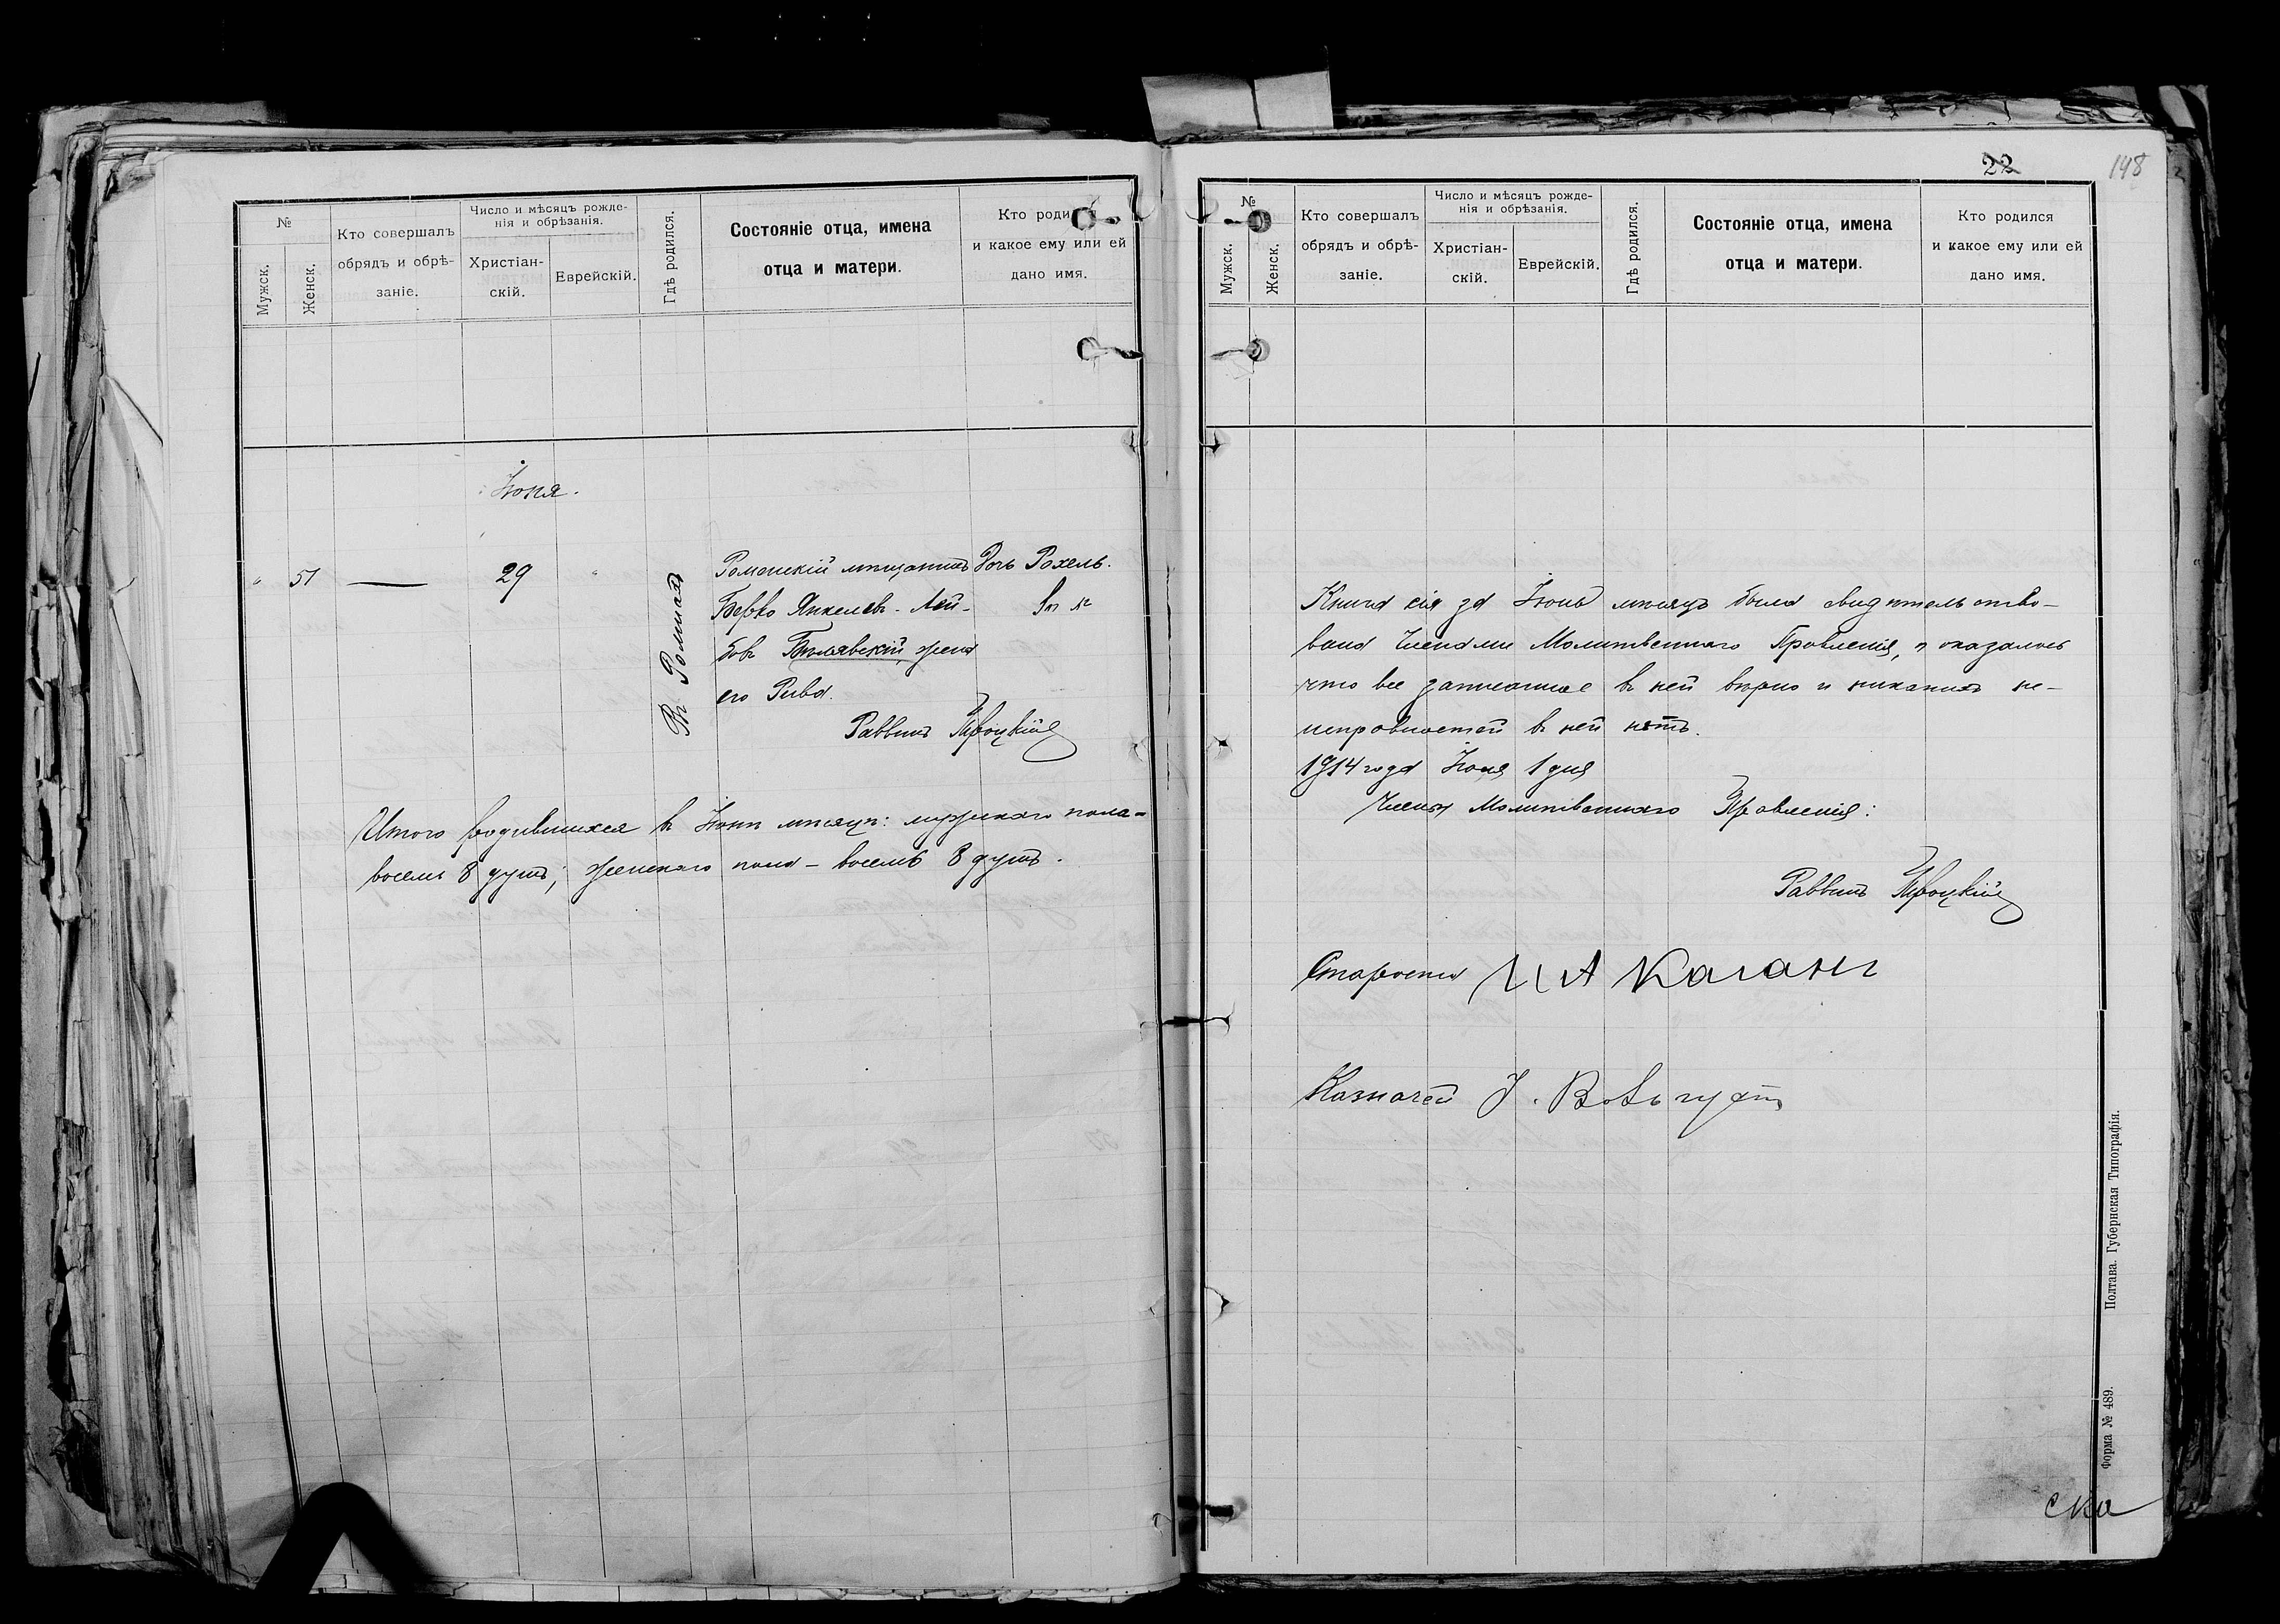 №
Мужск.
Женск.
Кто совершалъ
обрядъ и обрѣ-
заніе.
Число и мѣсяцъ рожде-
нія и обрѣзанія.
Христіан-
скій.
Еврейскій.
Гдѣ родился.
Состояніе отца, имена
отца и матери.
Кто роди
и какое ему или ей
дано имя.
Іюня.
51
29
Въ Ромнахъ
Роменскій мѣщанинъ
Берко Янкелев-Лей-
бовъ Бѣлявскій, жена
его Рива.
Дочь Рохель.
Раввинъ Троцкій
Итого родившихся въ Іюнѣ мѣсяцѣ: мужскаго пола-
восемь 8 душъ; женскаго пола – восемь 8 душъ.
22
148
№
Мужск.
Женск.
Кто совершалъ
обрядъ и обрѣ-
заніе.
Число и мѣсяцъ рожде-
нія и обрѣзанія.
Христіан-
скій.
Еврейскій.
Гдѣ родился.
Состояніе отца, имена
отца и матери.
Кто родился
и какое ему или ей
дано имя.
Книга сія за Іюнь мѣсяцъ была свидѣтельство-
вана Членами Молитвеннаго Правленія, и оказалось
что все записанное въ ней вѣрно и никакихъ не-
исправностей въ ней нѣтъ.
1914 года Іюля 1 дня
Члены Молитвеннаго Правленія:
Раввинъ Троцкій
Староста И А Каганъ
Казначей
Полтава. Губернская Типографія.
Форма № 489.
ска